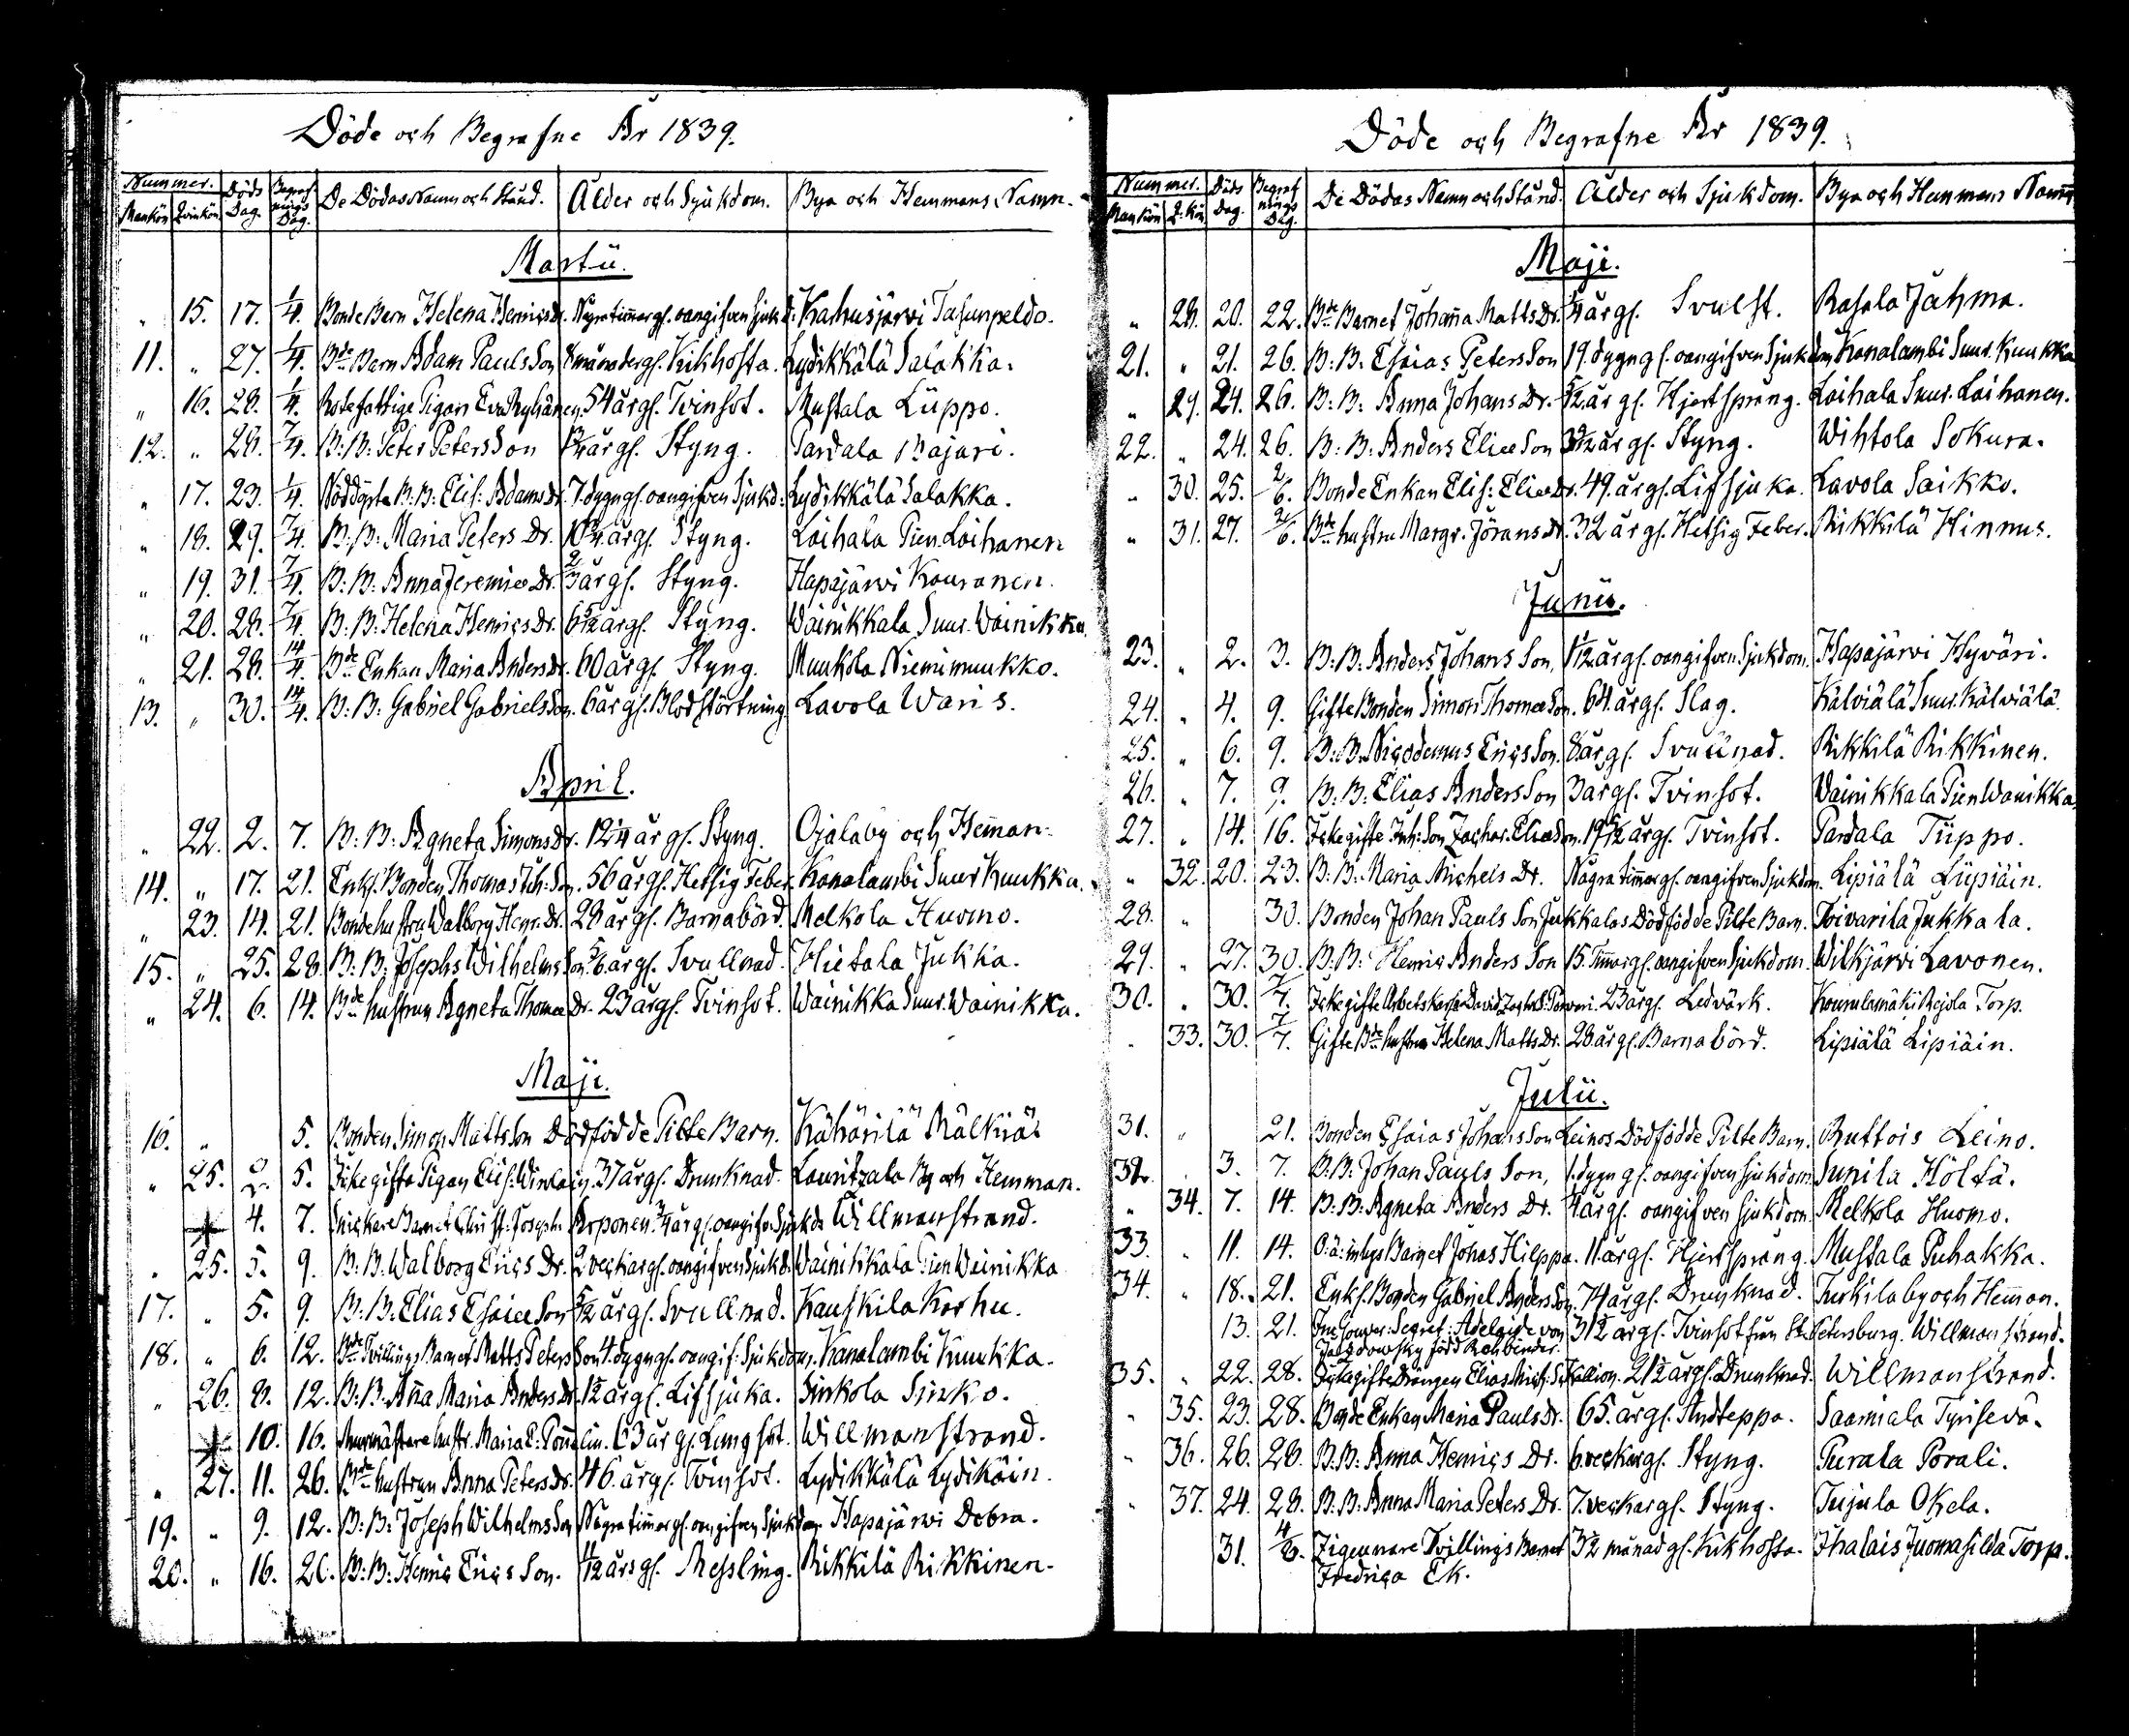 Döde och Begrafne År 1839.
Nummer. Döds Dag. Begrafnings Dag. De Dödas Namn och Stånd. Ålder och Sjukdom. Bya och Hemmans Namn.
Mankön Qvinkön
Martii.
" 15. 17. 1/4. Bonde Barn Helena Henricsdr. Några timmar gl. oangifven Sjukd: Karhusjärvi
11. " 27. 1/4. Bde Barn Adam Pauls Son månader gl. Kikhosta. Lydikkälä Salakka.
" 16. 28. 1/4. Rotefattige Pigan Eva Ryhänen. 54 år gl. Tvinsot. Mustala Lüppo.
12. " 28. 7/4. B: B: Peter Peters Son år gl. Styng. Pardala Bajari.
" 17. 23. 1/4. Nöddöpta B: B: Elis: Adams dr. 7 dygn gl. oangifven Sjukd: Lydikkälä Salakka.
" 18. 29. 7/4. B: B: Maria Peters Dr. år gl. Styng. Laihala Pien Laihanen
" 19. 31. 7/4. B: B: Anna Jeremiæ Dr. 2/3 år gl. Styng. Hapajärvi Kouranen.
" 20. 28. 7/4. B: B: Helena Henrics Dr. 6 5/12 år gl. Styng. Wainikkala Suur Wainikka.
" 21. 28. 14/4. Bde Enkan Maria Anders dr. 60 år gl. Styng. Muukola Niemimuukko.
13. " 30. 14/4. B: B: Gabriel Gabriels Son. 6 år gl. Blodstörtning. Lavola Waris.
April.
" 22. 2. 7. B: B: Agneta Simons Dr. 12 1/4 år gl. Styng. Ojalaby och Hemman.
14. " 17. 21. Enkl. Bonden Thomas Joh: Son. 56 år gl. Hetsig Feber. Kanalambi Suur Kuukka.
" 23. 14. 21. Bonde hustru Walborg Henr. Dr. 28 år gl. Barnabörd. Melkola Huomo.
15. " 25. 28. B: B: Josephs Wilhelms Son 5/6 år gl. Svullnad. Hietala Jukka.
" 24. 6. 14. Bde hustrun Agneta Thomæ Dr. 23 år gl. Tvinsot. Wainikka Suur Wainikka.
Maji.
16. " 5. Bonden Simon Matts Son Dödfödde Pilte Barn. Kähärilä Mälkiä
" 25. 2. 5. Icke gifta Pigan Elis: 37 år gl. Drunknad. Lauritzala By och Hemman.
4. 7. Snickare Barnet Christ: Josephi Arponen. 3/4 år gl. oangifv: Sjukd: Willmanstrand.
" 25. 5. 9. B: B: Walborg Erics Dr. 2 veckor gl. oangifven Sjukd. Wainikkala Pien Wainikka
17. " 5. 9. B: B: Elias Esaiæ Son 5/12 år gl. Svullnad. Kauskila Karhu.
18. " 6. 12. Bde Tvillings Barnet Matts Peters Son 4 dygn gl. oangif: Sjukdom. Kanalambi Kuukka.
" 26. 8. 12. B: B: Anna Maria Anders Dr. 1 1/2 år gl. Lifsjuka. Sinkola Sinko.
10. 16. Murmästare hustr. Maria E. 63 år gl. Lungsot. Willmanstrand.
" 27. 11. 26. Bde hustrun Anna Peters Dr. 46 år gl. Tvinsot. Lydikkälä Lydikäin.
19. " 9. 12. B: B: Joseph Wilhelms Son Några timmar gl. oangifven Sjukdom. Hapajärvi Dobra.
20. " 16. 26. B: B: Henric Erics Son. 1/2 års gl. Messling. Rikkilä Rikkinen.
Döde och Begrafne År 1839.
Nummer. Döds Dag. Begrafnings Dag. De Dödas Namn och Stånd. Ålder och Sjukdom. Bya och Hemmans Namn
Mankön Q: kön
Maji.
" 28. 20. 22. Bde Barnet Johanna Matts Dr. 1/4 år gl. Svulst. Rasala Jahma.
21. " 21. 26. B: B: Esaias Peters Son 19 dygn gl. oangifven Sjukdom. Kanalambi Suur Kuukka
" 29. 24. 26. B: B: Anna Johans Dr. år gl. Hjertsprång. Laihala Suur Laihanen.
22. " 24. 26. B: B: Anders Eliæ Son år gl. Styng. Wihtola Sokura.
" 30. 25. 2/6. Bonde Enkan Elis: Eliæ Dr. 49 år gl. Lifsjuka. Lavola Saikko.
" 31. 27. 2/6. Bde hustru Margr. Jörans dr. 32 år gl. Hetsig Feber. Rikkilä Hinnus.
Junii.
23. " 2. 3. B: B: Anders Johans Son, 1 1/2 år gl. oangifven Sjukdom. Hapajärvi Hyväri.
24. " 4. 9. Gifte Bonden Simon Thomæ Son. 64 år gl. Slag. Kälviälä Suur Kälviälä.
25. " 6. 9. B: B: Nicodemus Erics Son. år gl. Svullnad. Rikkilä Rikkinen.
26. " 7. 9. B: B: Elias Anders Son 3 år gl. Tvinsot. Wainikkala Pien Wainikka.
27. " 14. 16. Icke gifte Inh: Son Zachar. Eliæ Son. 19 5/12 år gl. Tvinsot. Pardala Tüppo.
" 32. 20. 23. B: B: Maria Michels Dr. Några timmar gl. oangifven Sjukdom. Lipiälä Lipiäin.
28. " 30. Bonden Johan Pauls Son Jukkalas Dödfödde Pilte Barn. Toivarila Jukkala.
29. " 27. 30. B: B: Henric Anders Son 15 Timmar gl. oangifven Sjukdom. Wilkjärvi Lavonen.
30. " 30. 7/7. Icke gifte Arbetskarln David 23 år gl. Ledvärk. Kourulamäki Rejola Torp.
" 33. 30. 7/7. Gifte Bde hustrun Helena Matts Dr. 28 år gl. Barnabörd. Lipiälä Lipiäin.
Julii.
31. " 21. Bonden Esaias Johans Son Leinos Dödfödde Pilte Barn. Ruttois Leino.
32. 3. 7. B: B: Johan Pauls Son, 1 dygn gl. oangifven sjukdom. Sunila Höltä.
" 34. 7. 14. B: B: Agneta Anders Dr. 1/4 år gl. oangifven sjukdom. Melkola Huomo.
33. " 11. 14. O: ä: inhys Barnet Johas Hilppa. 11 år gl. Hjertsprång. Mustala Puhakka.
34. " 18. 21. Enkl. Bonden Gabriel Anders Son. 74 år gl. Drunknad. Turkila by och Hemman.
13. 21. Fru Gouver: Secret: Adelaide von 31 1/2 år gl. Tvinsot från St. Petersburg. Willmanstrand.
född Rehbinder.
35. " 22. 28. Icke gifte Drängen Elias Mich: S. Kallion. 21 1/2 år gl. Drunknad. Willmanstrand.
" 35. 23. 28. Bonde Enkan Maria Pauls dr. 65 år gl. Andteppa. Saamala Tyrisevä.
" 36. 26. 28. B: B: Anna Henrics Dr. 6 veckor gl. Styng. Purala Porali.
" 37. 24. 28. B: B: Anna Maria Peters Dr. 7 veckor gl. Styng. Tujula Okela.
31. 4/8. Zigeunare Tvillings Barnet 3 1/2 månad gl. Kikhosta. Ihalais Juomasilda Torp.
Fredrica Ek.